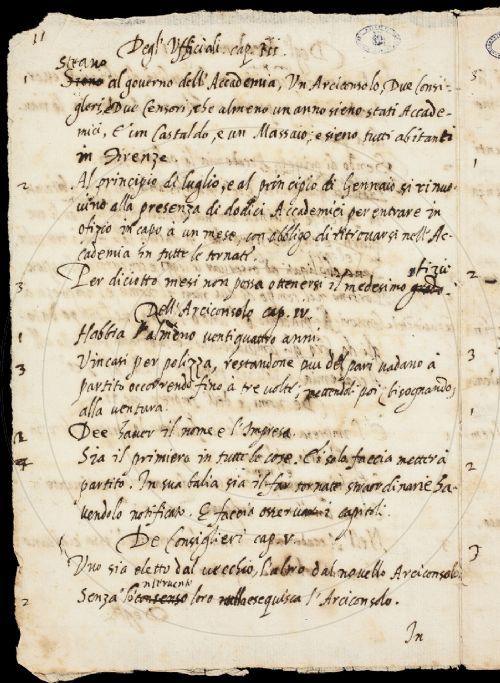 11
Degl' Ufficiali cap. III.
Sieno
1 Sieno al governo dell'Accademia, Un Arciconsolo, Due Consi-
glieri, e Due Censori, che almeno un anno sieno stati Accade-
mici, E un Castaldo, e un Massaio; e sieno tutti abitanti
in Firenze
2 Al principio di luglio, e al principio di Gennaio si rinuo-
vino alla presenza di dodici Accademici per entrare in
ofizio in capo a un mese, con obbligo di ritrovarsi nell'Ac-
cademia in tutte le tornate.
ufizio
3 Per diciotto mesi non possa ottenersi il medesimo grado.
Dell'Arciconsolo cap. IV.
1 Habbia almeno ventiquattro anni.
3 Vincasi per polizza, restandone più del pari vadano a
partito occorrendo fino a tre volte, poi (bisognando)
alla ventura.
2 Dee haver il nome e l'Impresa.
4 Sia il primiero in tutte le cose. E solo faccia mettere a
partito. In sua balia sia il far tornate straordinarie ha-
vendolo notificato. E faccia osservare i capitoli.
De Consiglieri cap. V.
1 Uno sia eletto dal vecchio, l'altro dal novello Arciconsolo.
intervento
2 Senza lo consenso loro nulla eseguisca l'Arciconsolo.
In
3
1
2
3
1
2
3